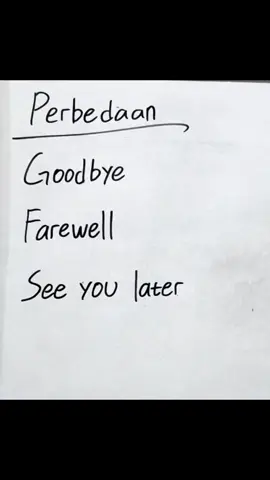 Perbedaan
Goodbye
Farewell
See you later